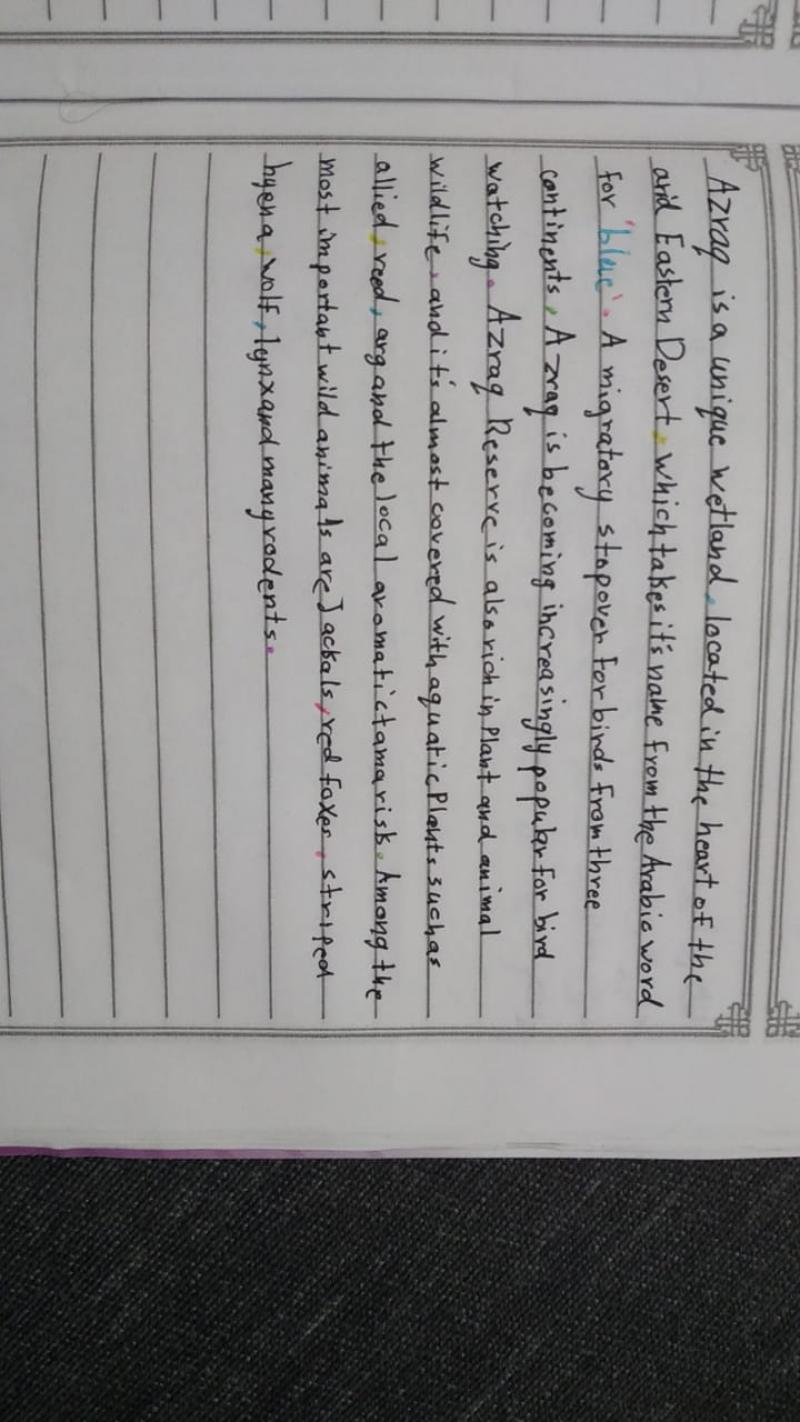 Azraq is a unique wetland, located in the heart of the
arid Eastern Desert, which takes it's name from the Arabic word
for 'blue'. A migratory stopover for birds from three
continents, Azraq is becoming increasingly popular for bird
watching. Azraq Reserve is also rich in Plant and animal
wildlife, and it's almost covered with aquatic Plants such as
allied, reed, arg and the local aromatic tamarisk. Among the
most important wild animals are Jackals, red foxes, striped
hyena, wolf, lynx and many rodents.